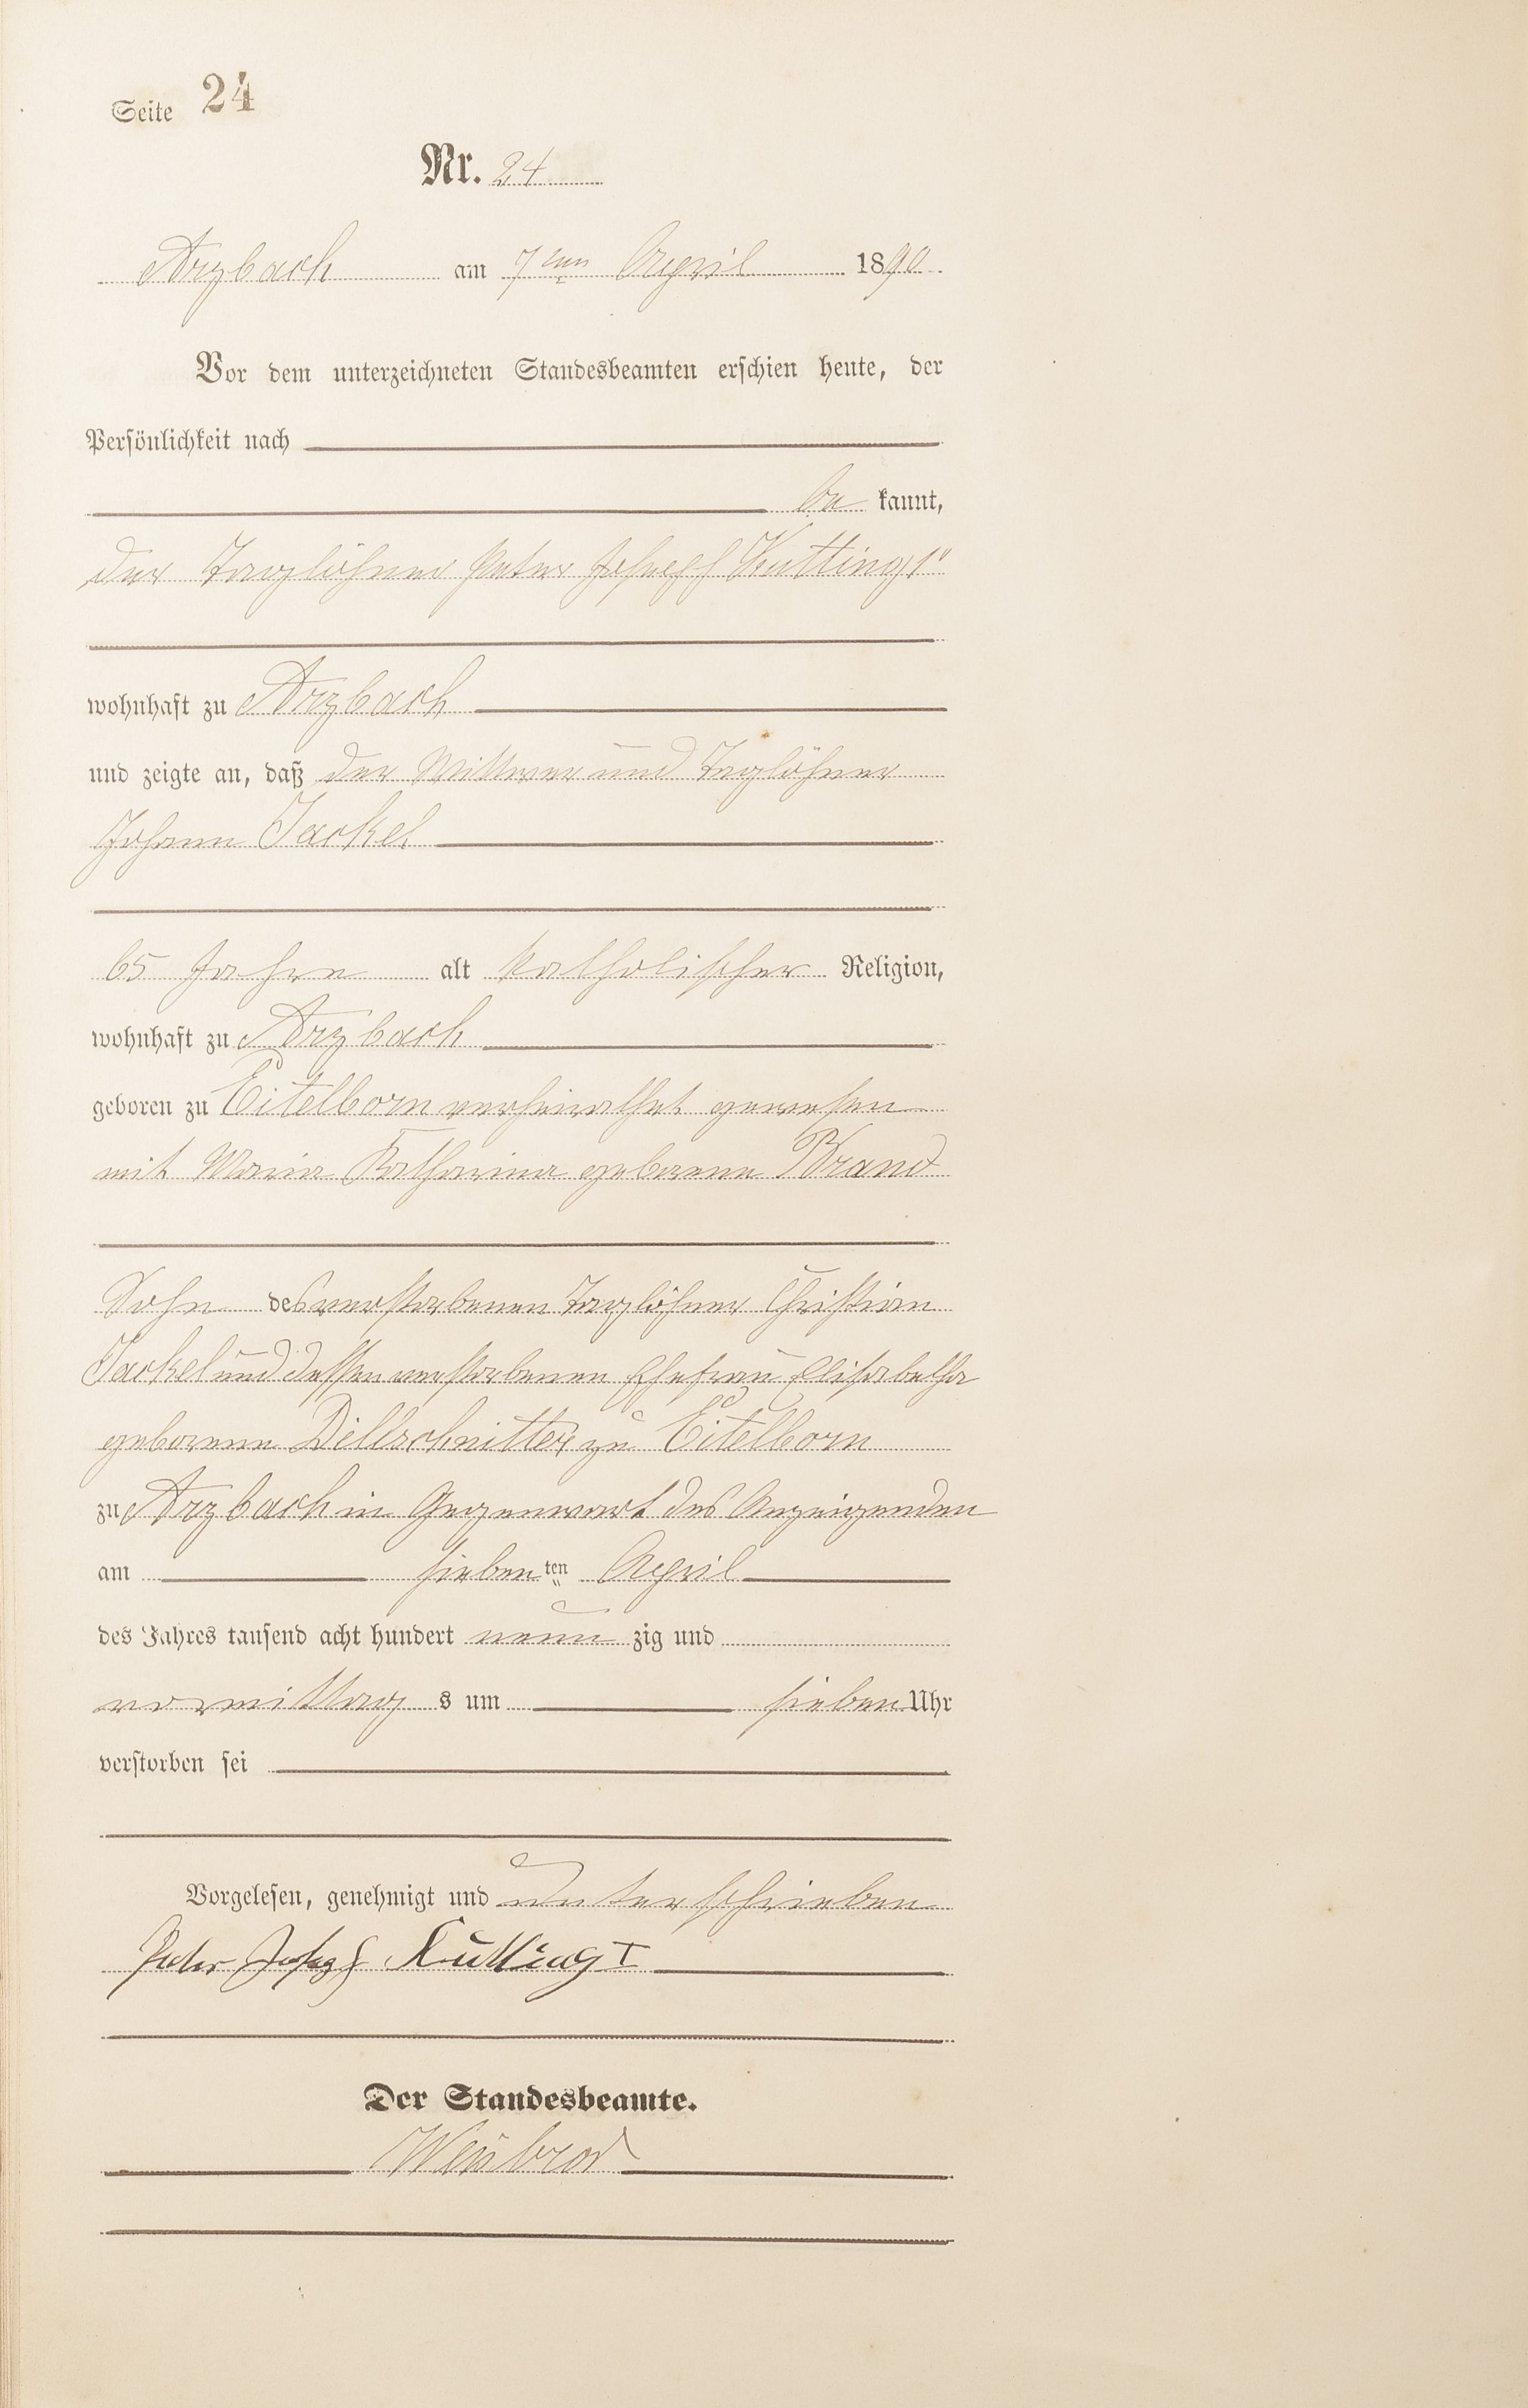 Seite 24
Nr. 24
Arzbach am 7ten April 1890
Vor dem unterzeichneten Standesbeamten erschien heute, der
Persönlichkeit nach
be kannt,
der Taglöhner Peter Joseph Kutting 1"
wohnhaft zu Arzbach
und zeigte an, daß der Wittwer und Taglöhner
Johann Jackel
65 Jahre alt katholischer Religion,
wohnhaft zu Arzbach
geboren zu Eitelborn verheirathet gewesen
mit Maria Katharina geborene Brand
Sohn des verstorbenen Taglöhner Christian
Jackel und dessen verstorbenen Ehefrau Elisabetha
geborene Dillschnitter zu Eitelborn
zu Arzbach in Gegenwart des Anzeigenden
am sieben ten April
des Jahres tausend acht hundert neun zig und
vormittag s um sieben Uhr
verstorben sei
Vorgelesen, genehmigt und unterschrieben
Peter Joseph Kutting I
Der Standesbeamte.
Weisbrod